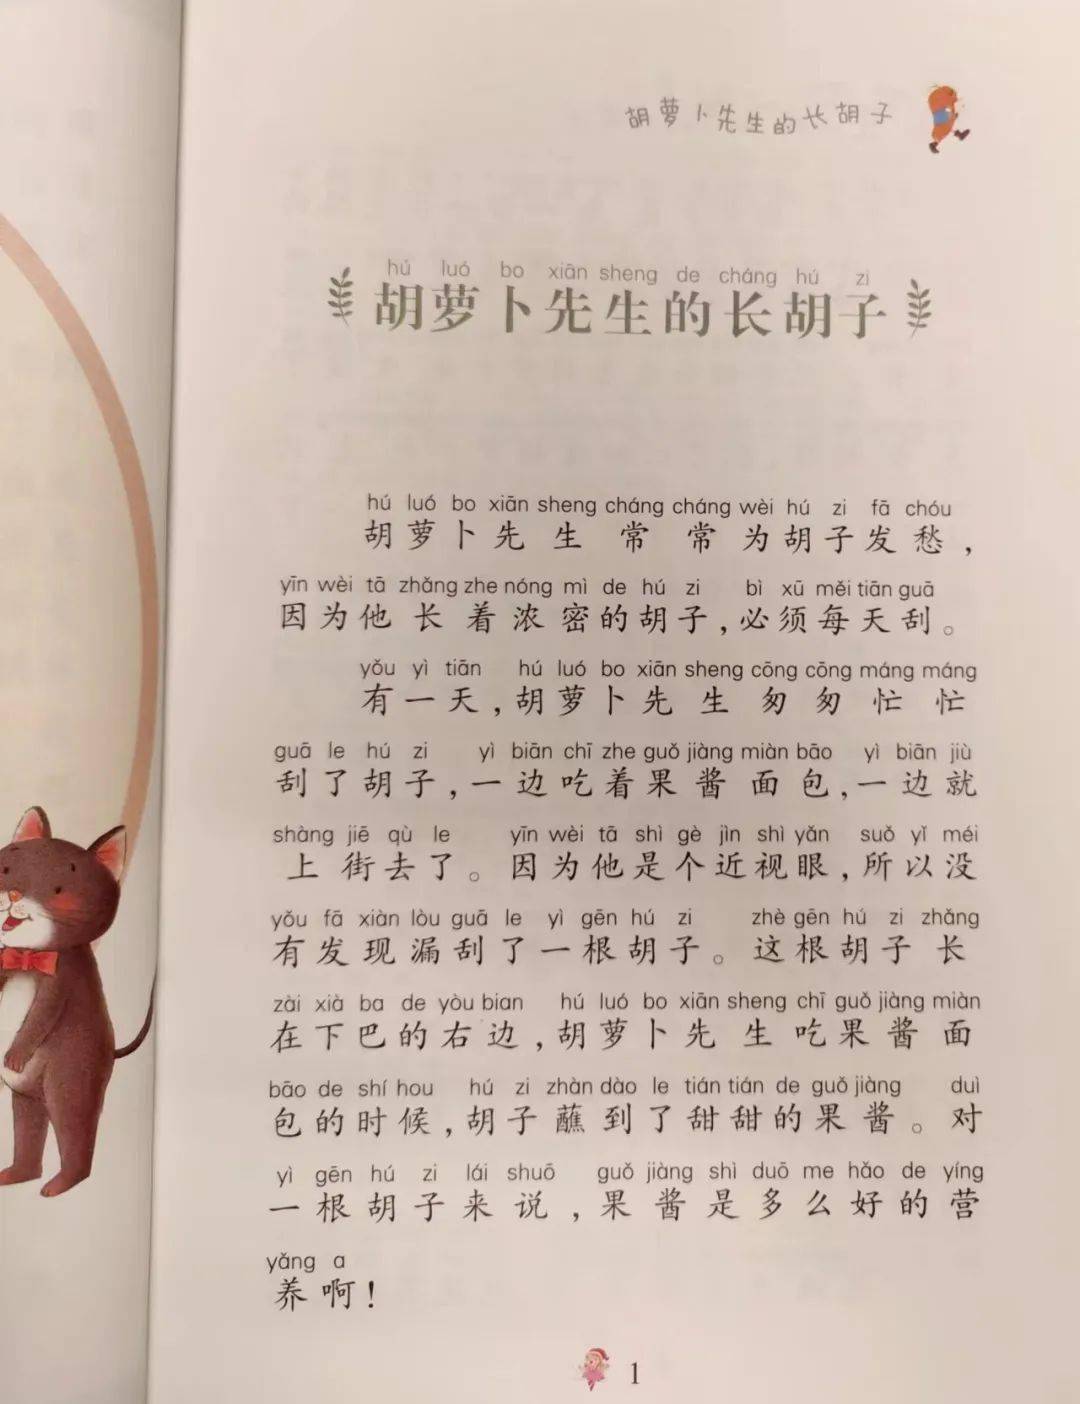 胡萝卜先生的长胡子
hú luó bo xiān sheng de cháng hú zi
胡萝卜先生的长胡子
hú luó bo xiān sheng cháng cháng wèi hú zi fā chóu
胡萝卜先生常常为胡子发愁，
yīn wèi tā zhǎng zhe nóng mì de hú zi bì xū měi tiān guā
因为他长着浓密的胡子，必须每天刮。
yǒu yì tiān hú luó bo xiān sheng cōng cōng máng máng
有一天，胡萝卜先生匆匆忙忙
guā le hú zi yì biān chī zhe guǒ jiàng miàn bāo yì biān jiù
刮了胡子，一边吃着果酱面包，一边就
shàng jiē qù le yīn wèi tā shì gè jìn shì yǎn suǒ yǐ méi
上街去了。因为他是个近视眼，所以没
yǒu fā xiàn lòu guā le yì gēn hú zi zhè gēn hú zi zhǎng
有发现漏刮了一根胡子。这根胡子长
zài xià ba de yòu bian hú luó bo xiān sheng chī guǒ jiàng miàn
在下巴的右边，胡萝卜先生吃果酱面
bāo de shí hou hú zi zhàn dào le tián tián de guǒ jiàng duì
包的时候，胡子蘸到了甜甜的果酱。对
yì gēn hú zi lái shuō guǒ jiàng shì duō me hǎo de yíng
一根胡子来说，果酱是多么好的营
yǎng a
养啊！
1